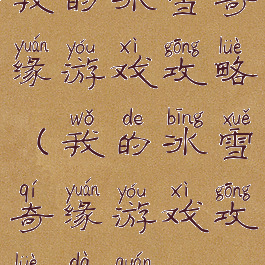 我的冰雪奇
yuán yóu xì gōng lüè
缘游戏攻略
wǒ de bīng xuě
（我的冰雪
qí yuán yóu xì gōng
奇缘游戏攻
lüè dà quán